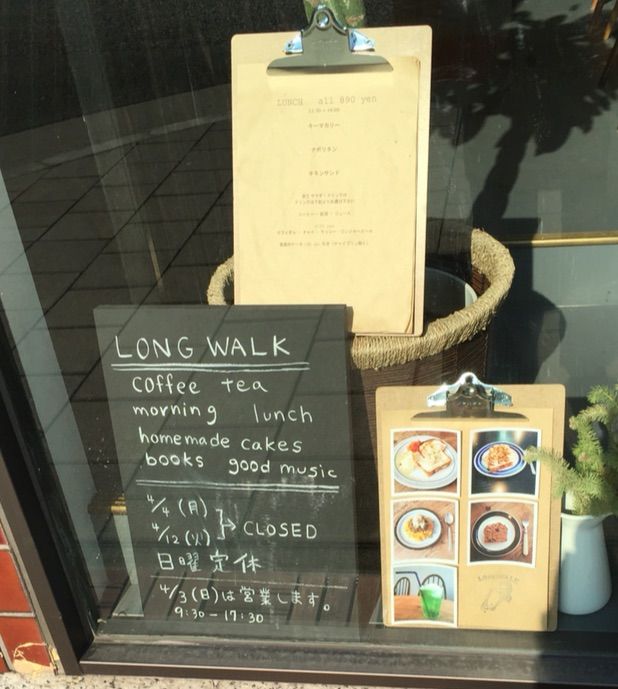 LUNCH all 890 yen
11:30 - 14:00
キーマカリー
ナポリタン
チキンサンド
LONG WALK
coffee tea
morning lunch
homemade cakes
books good music
4/4 (月)
4/12 (火)
CLOSED
日曜定休
4/3 (日)は営業します。
9:30 - 17:30
LONG WALK